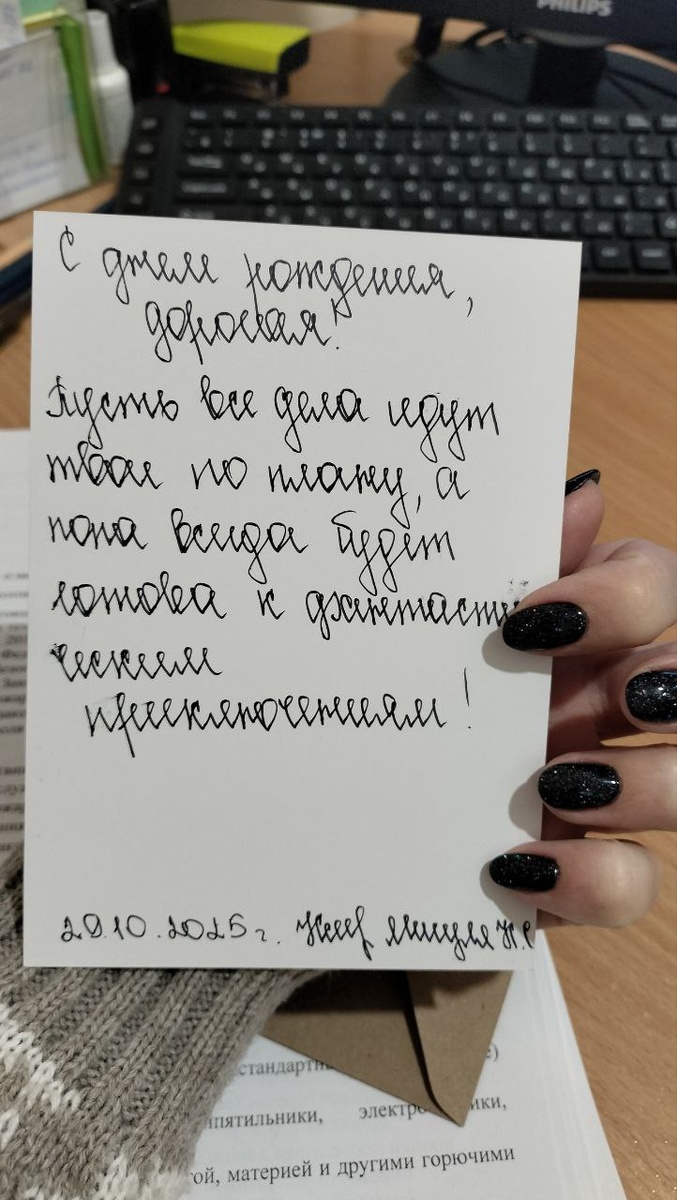 PHILIPS
С днем рождения,
дорогая!
Пусть все дела идут
твои по плану, а
попа всегда будет
готова к фантасти
ческим
приключениям!
29.10.2025г.
стандартн
ипятильники, электро ики,
ой, материей и другими горючими